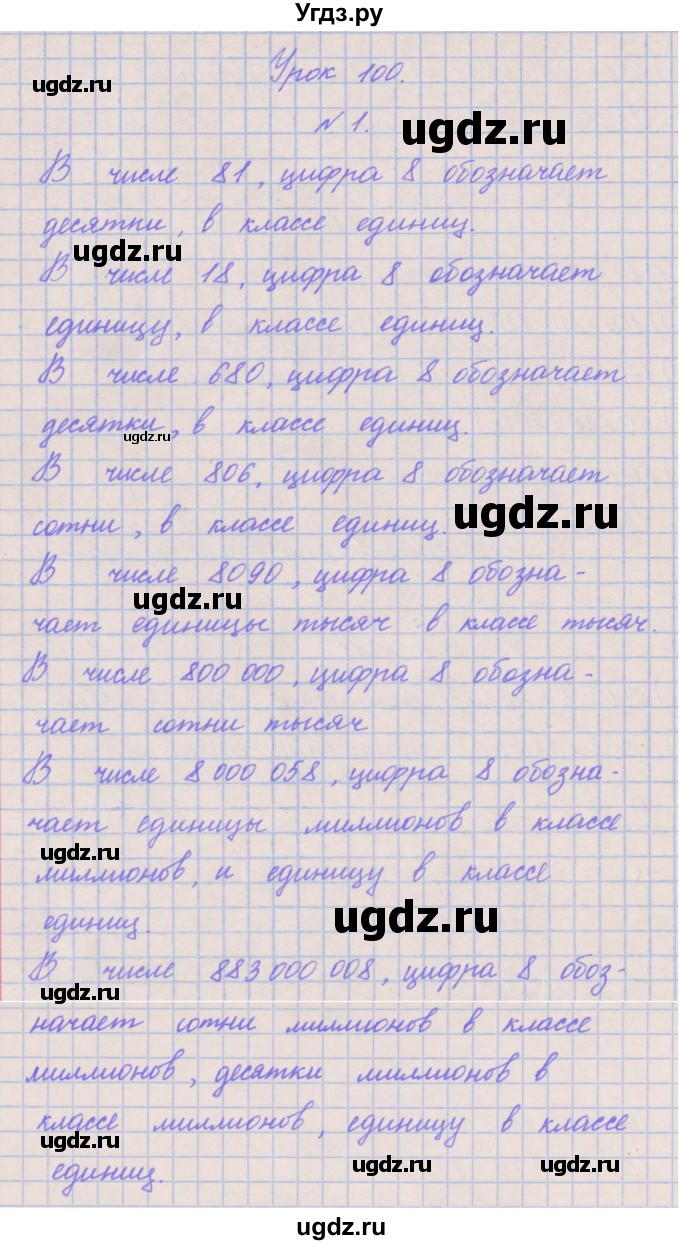 Угдз.ру
Урок 100.
ugdz.ru
N 1.
ugdz.ru
В числе 81, цифра 8 обозначает
десятки, в классе единиц.
ugdz.ru
В числе 18, цифра 8 обозначает
единицу, в классе единиц.
В числе 680, цифра 8 обозначает
десятки, в классе единиц.
ugdz.ru
В числе 806, цифра 8 обозначает
сотни, в классе единиц.
ugdz.ru
В числе 8090, цифра 8 обозна-
ugdz.ru
чает единицы тысяч в классе тысяч.
В числе 800 000, цифра 8 обозна-
чает сотни тысяч
В числе 8 000 058, цифра 8 обозна-
чает единицы миллионов в классе
ugdz.ru
миллионов, и единицу в классе
единиц.
ugdz.ru
В числе 883 000 008, цифра 8 обоз-
ugdz.ru
начает сотни миллионов в классе
миллионов, десятки миллионов в
классе миллионов, единицу в классе
ugdz.ru
единиц.
ugdz.ru
ugdz.ru
ugdz.ru